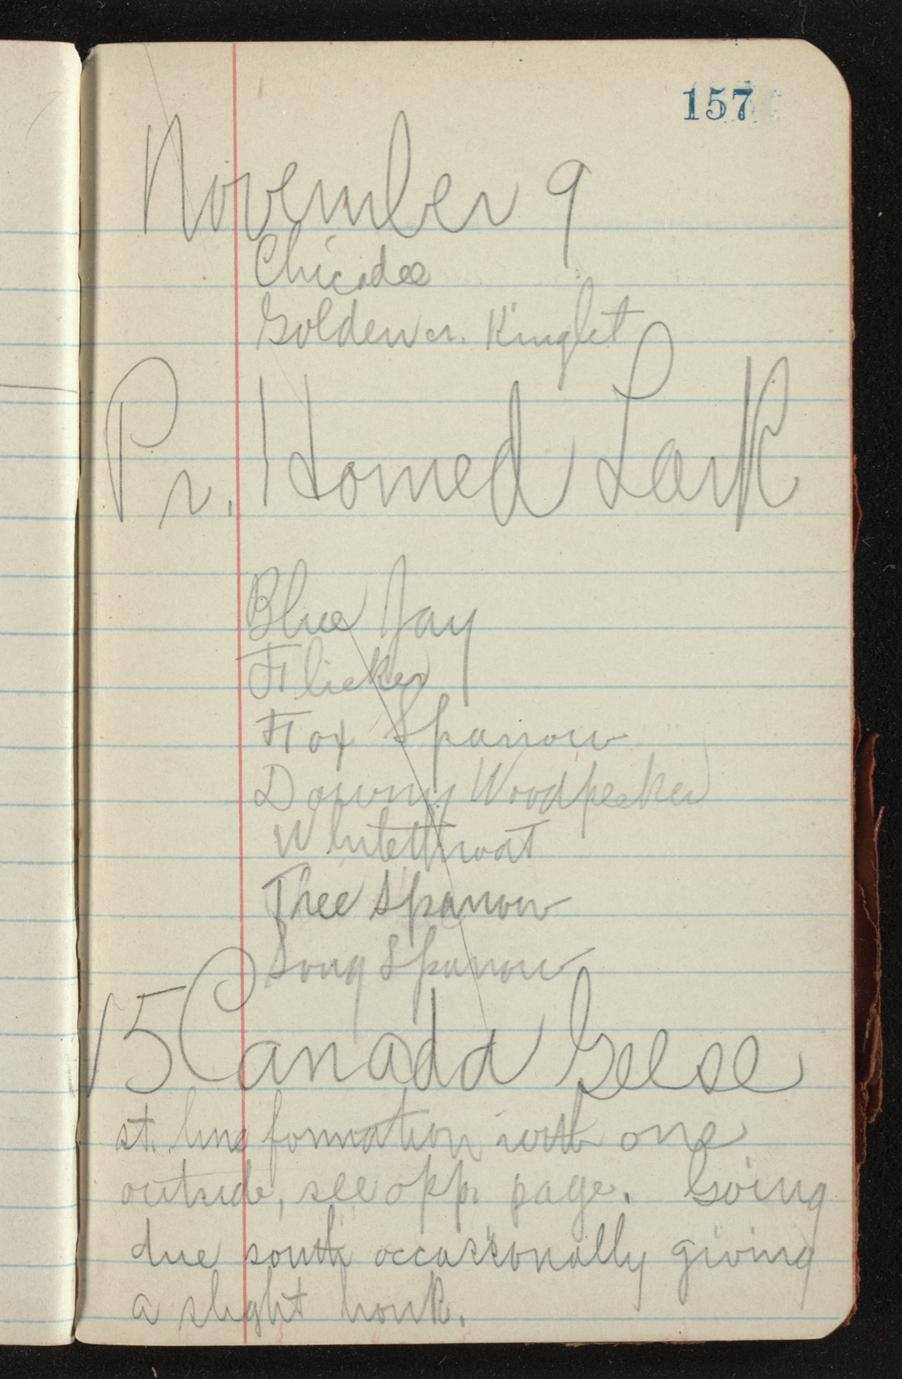 157
November 9
Chicadee
Golden cr. Kinglet
Pr. Horned Lark
Blue Jay
Flicker
Fox Sparrow
Downy Woodpecker
Whitethroat
Thee Sparrow
Song Sparrow
15 Canada Geese
st. line formation with one
outside, see opp. page. Going
due south occasionally giving
a slight honk.